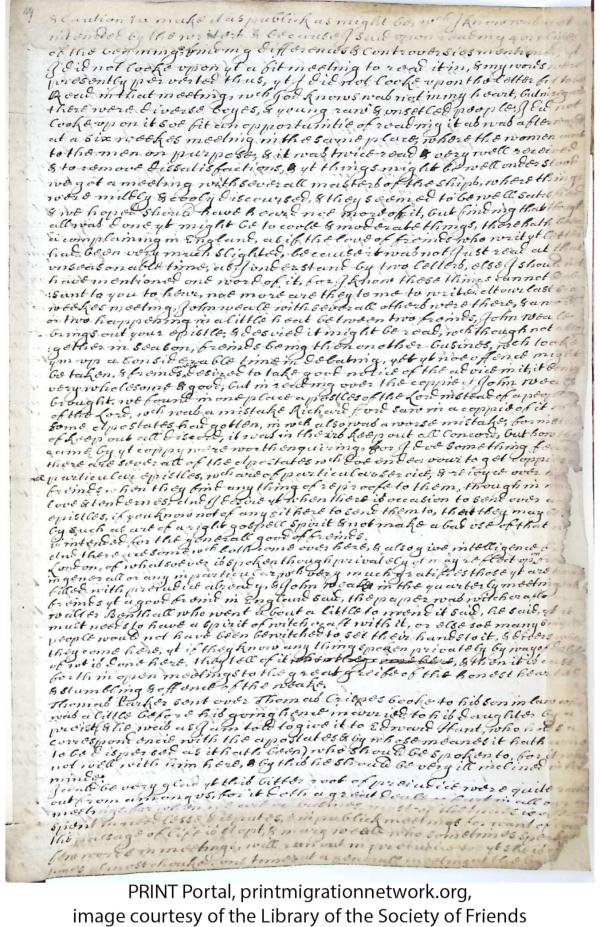 49
& Caution & to make it as publick as might be, wch I know was not
intended by the writers & because I said upon reading 4 or 5 lines
of the beginning finding differences & controversies mentioned, yt
I did not looke upon it a fit meeting to read it in, & my words were
presently perverted thus, yt I did not looke upon the letter fit to be
Read in that meeting, wch God knows was not in my heart, but
there were diverse boyes, & young raw & unsetled people, I did not
looke upon it soe fit an opportunitie of reading it as was afterwards
at a six weekes meeting in the same place, where the women came
to the men on purpose, & it was twice read & very well received
& to remove dissatisfactions, & yt things might be well understood
we got a meeting with severall masters of the ships, where things
were mildly & cooly discoursed, & they seemed to be well satisfied
& we hoped should have heard noe more of it, but finding that though
all was done yt might be to coole & moderate things, there hath
a complaining in England, as if the love of friends who writ yt letter
had been very much slighted, because it was not Just read at that
unseasonable time, as I understand by two letters, else I should not
have mentioned one word of it, for I know these things cannot be
sant to you to hear noe more are they to me to write, at our last six
weekes meeting, John weale with severall others were there, & an
or two happening in a little heat betweene two freinds, John weale
brings out your epistle, & desired it might be read, wch though not
gether in season, freinds being then on other busines, wch tooke
Em up a Considerable time in debating, yet yt noe offence might
be taken, & freinds desired to take good notice of the advice in it, it being
very wholesome & good, but in reading over the coppie yt John weale
brought, we found in one place apostles of the Lord instead of a people
of the Lord, wch was a mistake Richard ford saw in a coppie of it
some apostates had gotten, in wch also was a worse mistake, for instead
of keep out all discord, it was in theirs keep out all Concord, but how
came by yt coppy were worth enquiring, for I doe something
there are severall of the apostates wch doe endeavour to get Coppies
particular epistles, wch are of particular service, & rejoyce over
freinds when they find any thing of reproofe to them, though in
love & tendernes, & tis desire yt when there is occasion to send over
epistles, if you know not of any fit here to send them to, that they may
by such as are of a right gospell spirit & not make a bad use of that
is intended for the generall good of freinds.
And there are some wch both come over here, & also give intelligence to
London, of whatsoever is spoken though privately yt may reflect upon
in generall or any in particular, wch very much gratifies those yt are
filled with prejudice already, & John weale in the quarterly meeting
freinds yt a good freind in England said, the paper was witchcraft
Walter Benthall who went about a little to mend it said, he said, yt
must needs to have a spirit of witchcraft with it, or else soe many
people would not have been bewitched to set their hands to it, & others
they come here, yt if they know any thing spoken privately by way of
of wt is done here, they tell of it & then it is cast
forth in open meetings to the great greife of the honest hearted
& stumbling & offence of the weake.
Thomas Parker sent over Thomas Crispes booke to his son in law
was a little before his going hence married to his daughter by a
preist, & he was as I am told to give it to Edward Hunt, who
correspondencie with the apostates & by whose meanes it hath
to be dispersed as it hath been, who should be spoken to, for it
not well with him here, & by this he should be very ill inclined
minde.
I could be very glad yt this bitter root of prejudice were quite
out from amongs us, for it doth a great deale of hurt in all our
meetings
spent in needlesse disputes, & in publick meetings for want of
the passage of life is stopt, & mary weale who sometimes speaks
few words in meetings, will run out in prejudice
almost choaked, one time at a generall meeting
PRINT Portal, printmigrationnetwork.org,
image courtesy of the Library of the Society of Friends